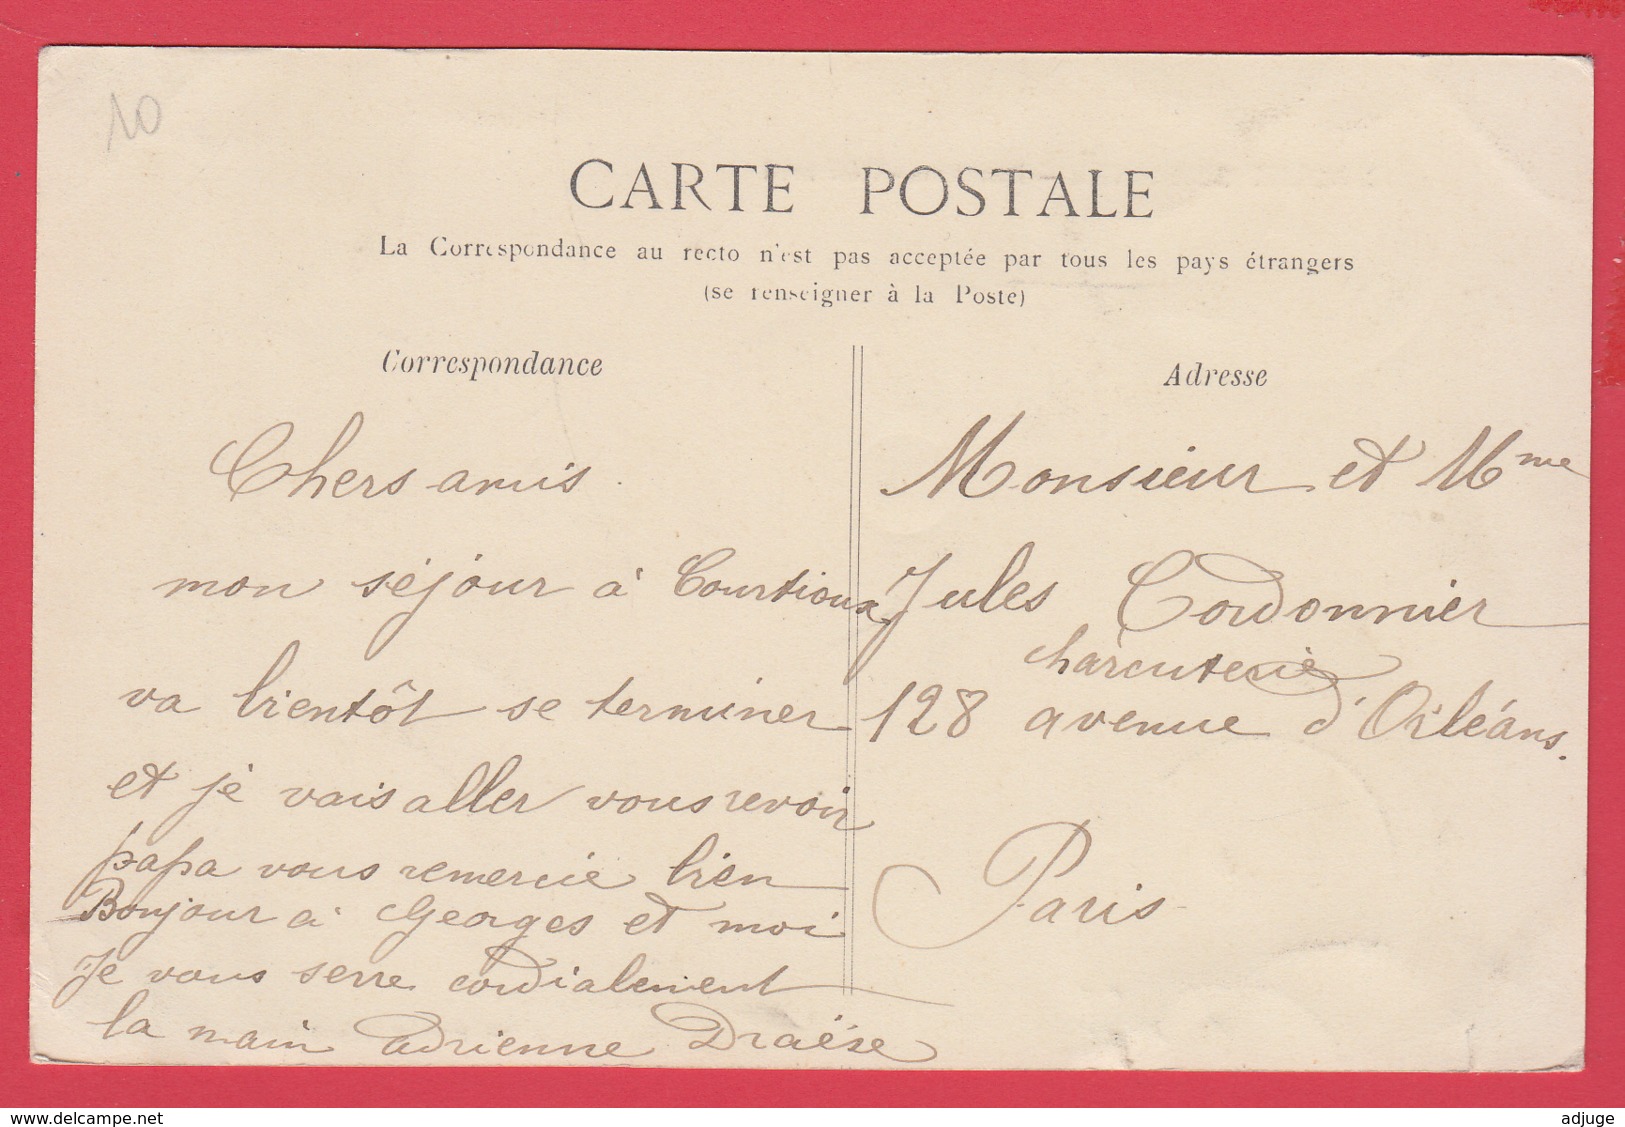 10
CARTE POSTALE
La Correspondance au recto n'est pas acceptée par tous les pays étrangers
(se renseigner à la Poste)
Correspondance
Chers amis.
mon séjour à Courtioux
va bientôt se terminer
et je vais aller vous revoir
papa vous remercie bien
Bonjour à Georges et moi
Je vous serre cordialement
la main Adrienne Draëse
Adresse
Monsieur et Mme
Jules Cordonnier
charcuterie
128 avenue d'Orléans.
Paris
www.delcampe.net
adjuge